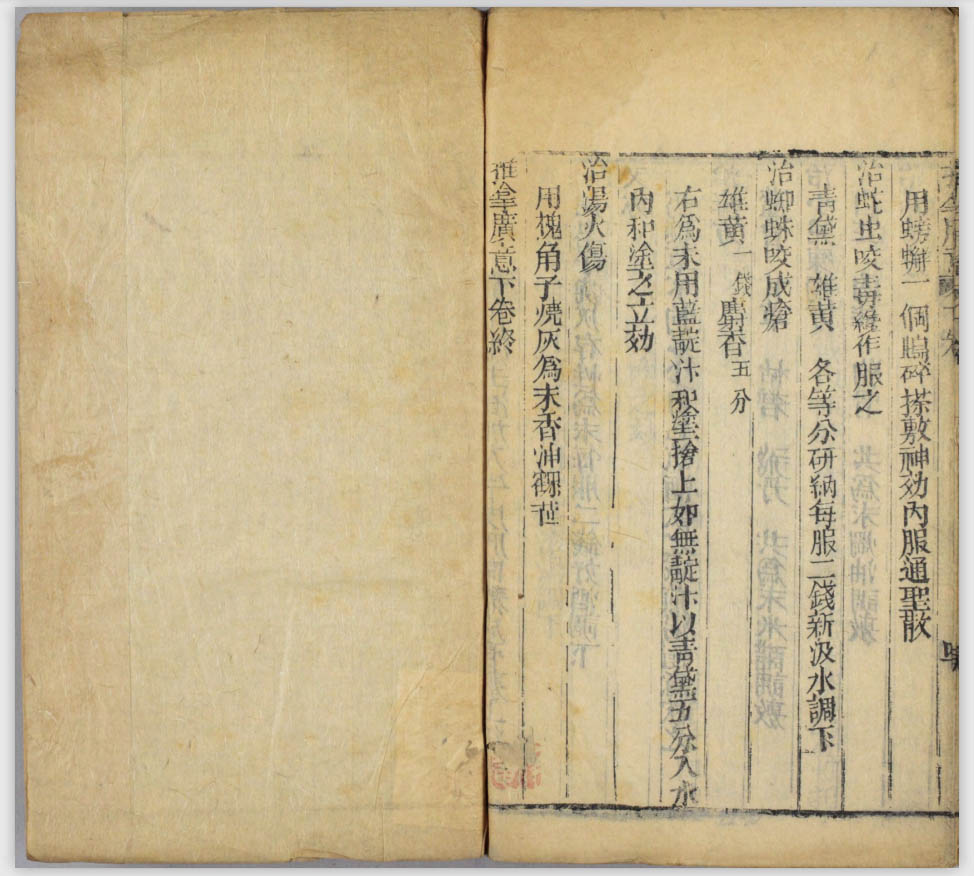 用螃蠏一個搗碎搽敷神効內服通聖散
治蛇虫咬毒纔作服之
青黛 雄黃 各等分研納每服二錢新汲水調下
治蜘蛛咬成瘡
雄黃一錢麝香五分
右爲末用藍靛汁和塗搶上如無靛汁以青黛五分入水
內和塗之立効
治湯火傷
用槐角子燒灰爲末香油
推拿廣意下卷終